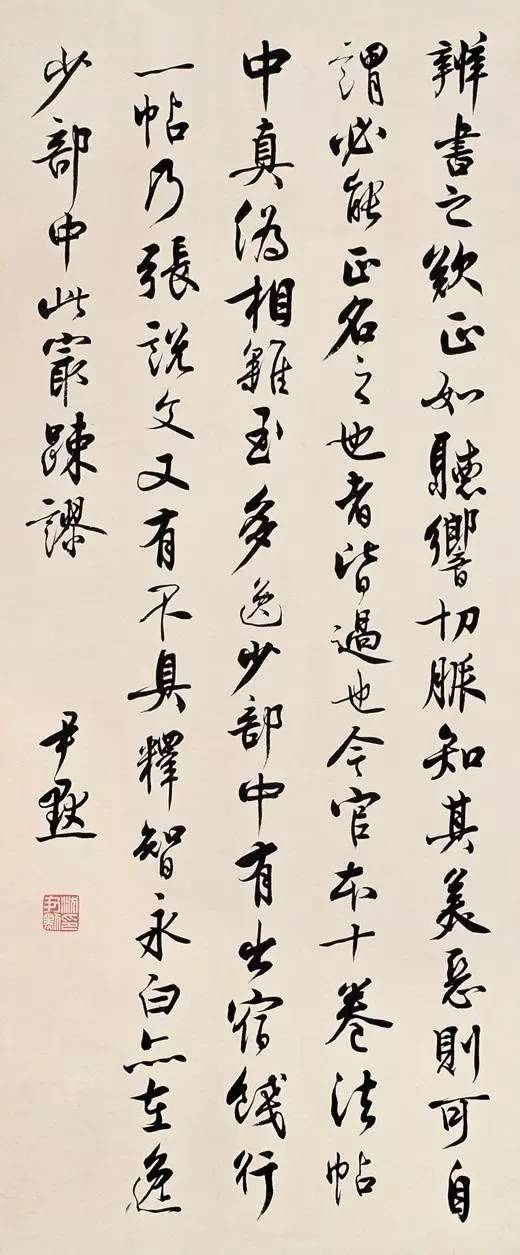 辨書之正如聽響切脈知其美惡則可自
謂必能正名之也者皆過也今官本十卷法帖
中真偽相雜至多逸少部中有出宿餞行
一帖乃張說文又有不具釋智永白亦在逸
少部中此㝡踈謬
尹默
沈印尹默